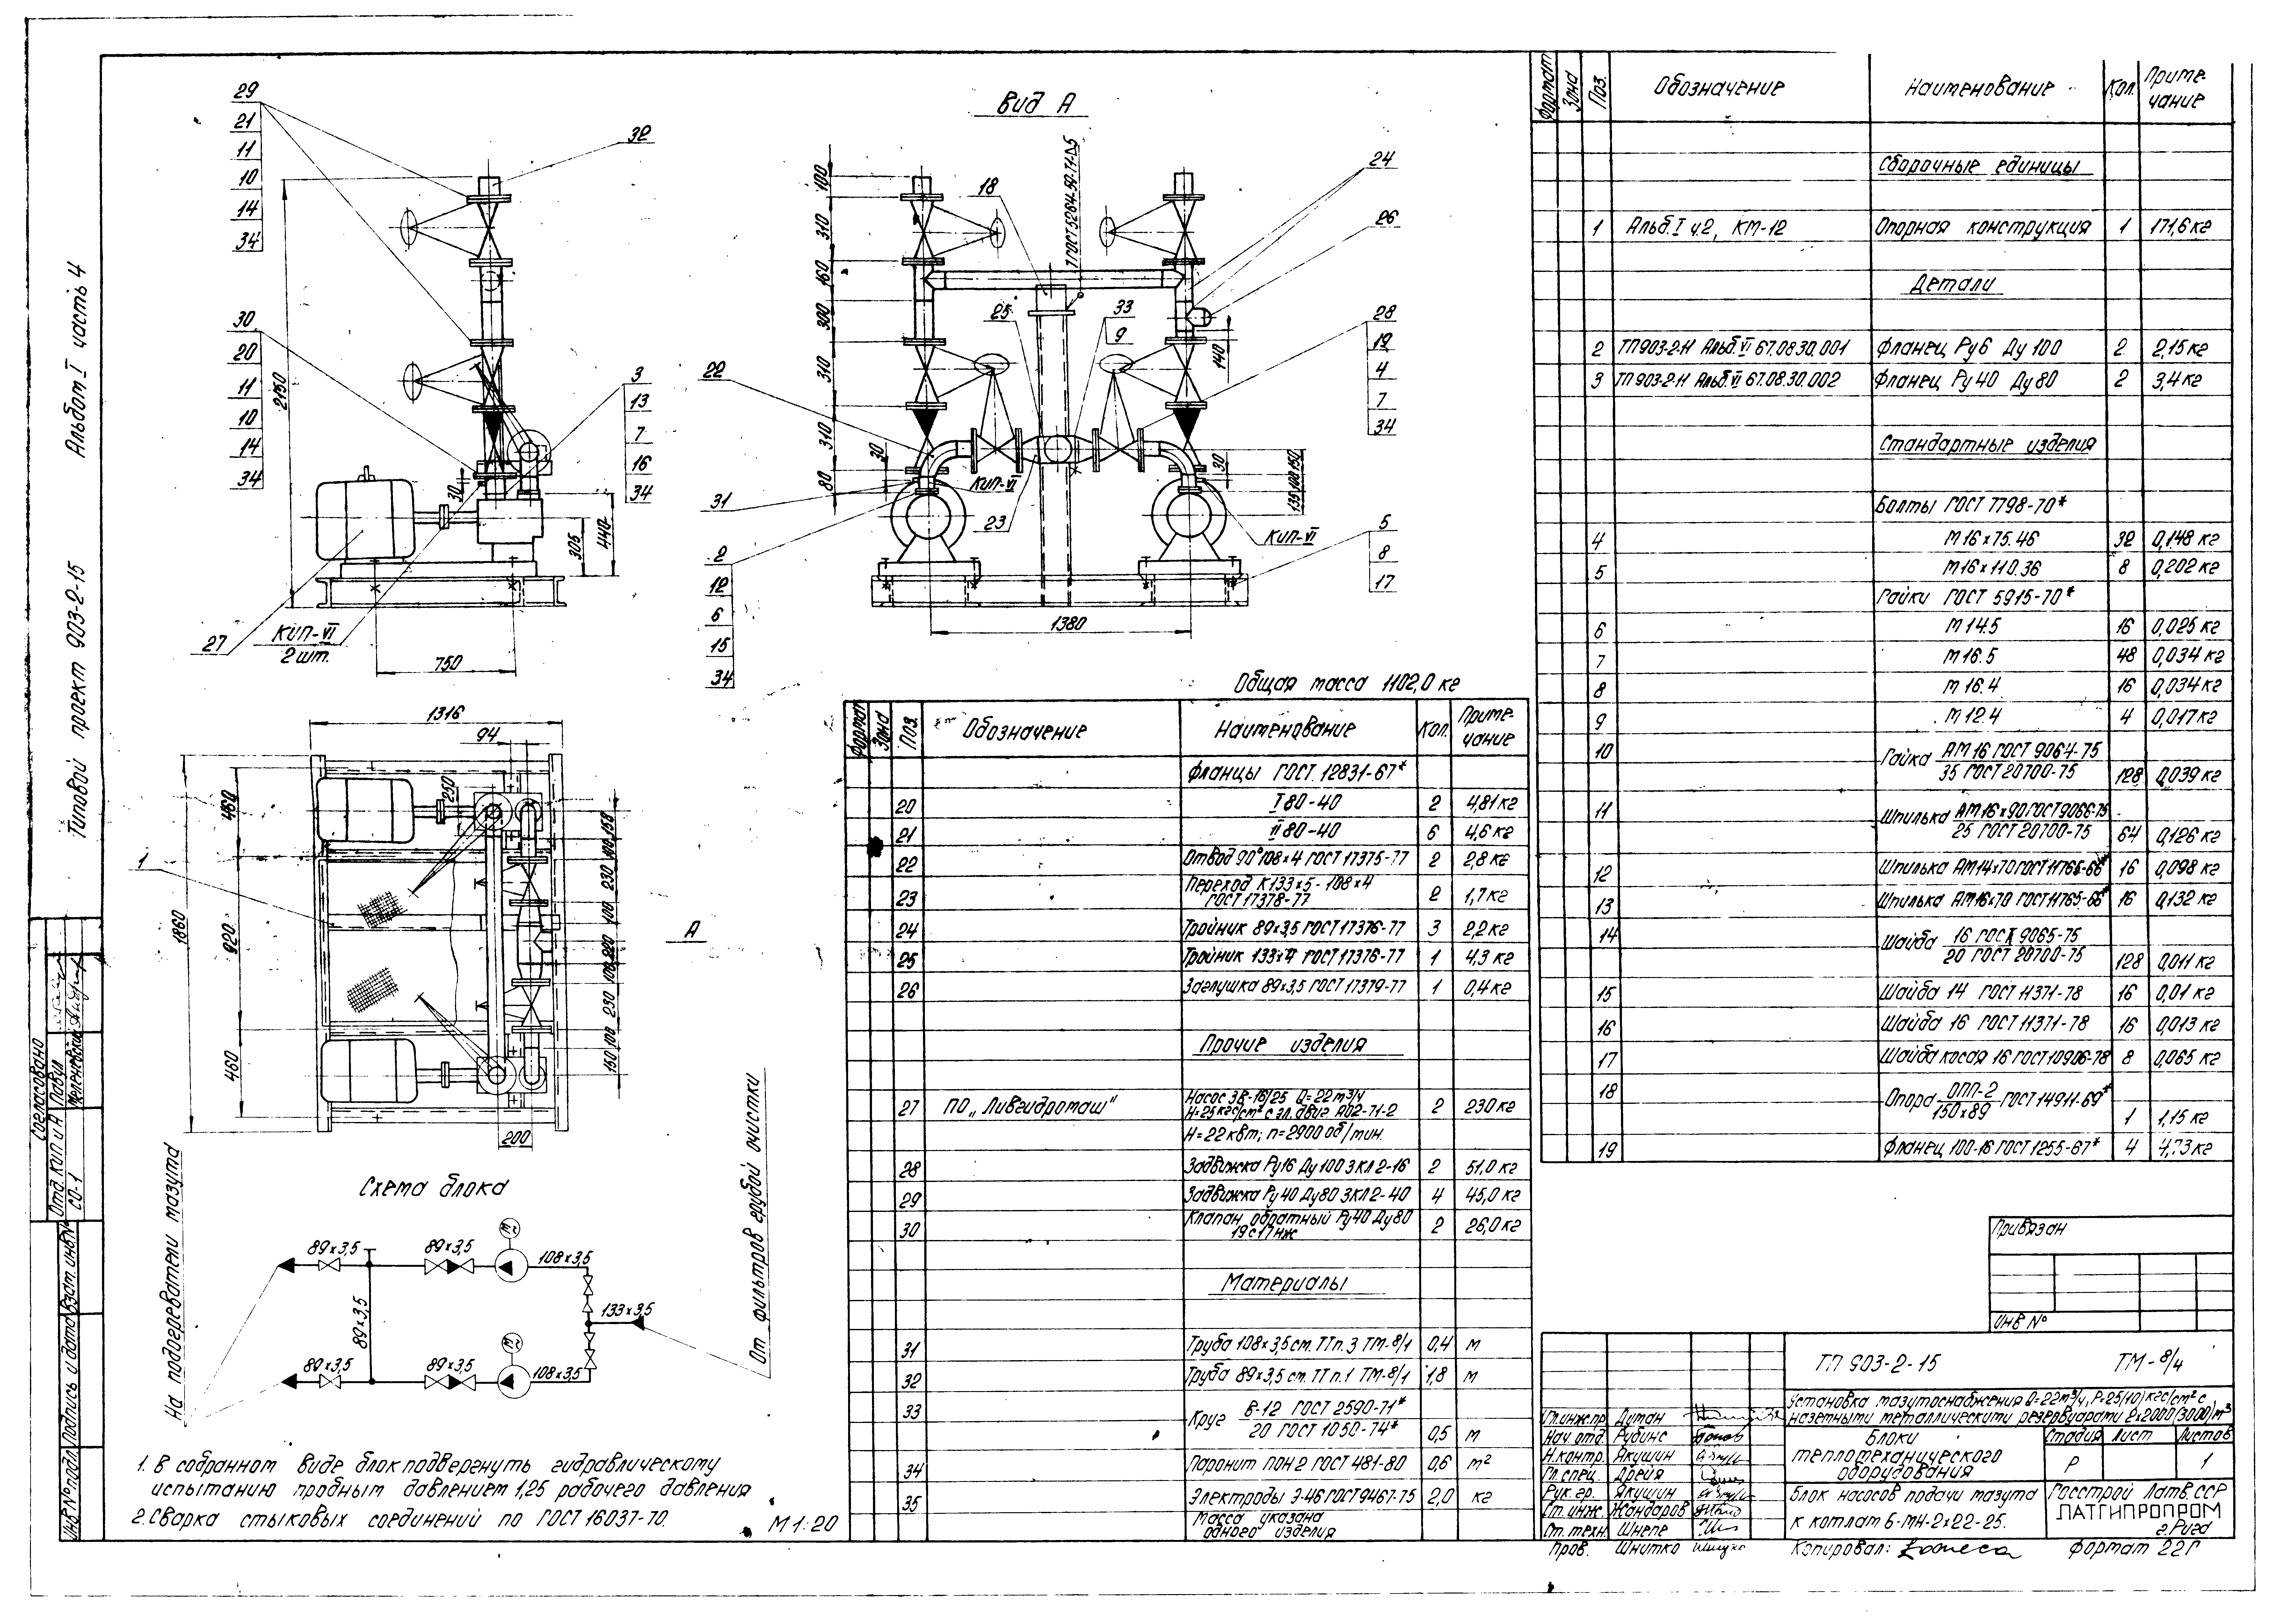 Альбом I часть 4
Типовой проект 903-2-15
29
21
11
10
14
34
30
20
11
10
14
34
32
3
13
7
16
34
2150
30
305
440
27
КИП-VI
2 шт.
750
Вид А
100
310
160
300
310
310
80
30
18
24
26
25
33
9
28
19
4
7
34
22
140
30
135 100 150
КИП-VI
31
23
КИП-VI
2
12
6
15
34
5
8
17
1380
1316
94
250
460
920
460
1860
1
А
150
100
230
100
220
100
230
100
150
200
Схема блока
На подогреватели мазута
От фильтров грубой очистки
89×3,5
89×3,5
108×3,5
89×3,5
133×3,5
89×3,5
89×3,5
108×3,5
1. В собранном виде блок подвергнуть гидравлическому
испытанию пробным давлением 1,25 рабочего давления
2. Сварка стыковых соединений по ГОСТ 16037-70.
М 1:20
Общая масса 1102,0 кг
Формат Зона Поз. Обозначение Наименование Кол. Приме-
чание
Фланцы ГОСТ 12831-67*
20 I 80-40 2 4,81 кг
21 II 80-40 6 4,6 кг
22 Отвод 90° 108×4 ГОСТ 17375-77 2 2,8 кг
Переход К133×5-108×4
23 ГОСТ 17378-77 2 1,7 кг
24 Тройник 89×3,5 ГОСТ 17376-77 3 2,2 кг
25 Тройник 133×4 ГОСТ 17376-77 1 4,3 кг
26 Заглушка 89×3,5 ГОСТ 17379-77 1 0,4 кг
Прочие изделия
27 ПО „Ливгидромаш" Насос 3В-16/25 Q=22 м³/ч 2 230 кг
Н=25 кгс/см² с эл. двиг. А02-71-2
Н=22 квт; п=2900 об/мин.
28 Задвижка Ру16 Ду100 ЗКЛ 2-16 2 51,0 кг
29 Задвижка Ру40 Ду80 ЗКЛ 2-40 4 45,0 кг
30 Клапан обратный Ру40 Ду80 2 26,0 кг
19с17нж
Материалы
31 Труба 108×3,5 см. ТТ п.3 ТМ-8/1 0,4 м
32 Труба 89×3,5 см. ТТ п.1 ТМ-8/1 1,8 м
33 Круг В-12 ГОСТ 2590-71*
20 ГОСТ 1050-74* 0,5 м
34 Паронит ПОН 2 ГОСТ 481-80 0,6 м²
35 Электроды Э-46 ГОСТ 9467-75 2,0 кг
Масса указана
одного изделия
Формат Зона Поз. Обозначение Наименование Кол. Приме-
чание
Сборочные единицы
1 Альб. I ч.2, КМ-12 Опорная конструкция 1 171,6 кг
Детали
2 ТП 903-2-11 Альб. VI 67.08.30.001 Фланец Ру6 Ду 100 2 2,15 кг
3 ТП 903-2-11 Альб. VI 67.08.30.002 Фланец Ру 40 Ду 80 2 3,4 кг
Стандартные изделия
Болты ГОСТ 7798-70*
4 М16×75.46 32 0,148 кг
5 М16×110.36 8 0,202 кг
Гайки ГОСТ 5915-70*
6 М14.5 16 0,025 кг
7 М16.5 48 0,034 кг
8 М16.4 16 0,034 кг
9 М12.4 4 0,017 кг
10 Гайка АМ 16 ГОСТ 9064-75
35 ГОСТ 20700-75 128 0,039 кг
11 Шпилька АМ 16×90 ГОСТ 9066-75
25 ГОСТ 20700-75 64 0,126 кг
12 Шпилька АМ14×70 ГОСТ 11765-66* 16 0,098 кг
13 Шпилька АМ16×70 ГОСТ 11765-66* 16 0,132 кг
14 Шайба 16 ГОСТ 9065-75
20 ГОСТ 20700-75 128 0,011 кг
15 Шайба 14 ГОСТ 11371-78 16 0,01 кг
16 Шайба 16 ГОСТ 11371-78 16 0,013 кг
17 Шайба косая 16 ГОСТ 10906-78 8 0,065 кг
18 Опора ОПП-2 ГОСТ 14911-69*
150×89 1 1,15 кг
19 Фланец 100-16 ГОСТ 1255-67* 4 4,73 кг
Привязан
Инв №
ТП 903-2-15 ТМ-8/4
Установка мазутоснабжения Q=22м³/ч, Р=25(10) кгс/см² с
наземными металлическими резервуарами 2×2000(3000)м³
Гл.инж.пр. Дутан
Нач.отд. Рубинс
Н.контр. Якушин
Гл.спец. Дрейя
Рук.гр. Якушин
Ст.инж. Жандаров
Ст.техн. Шнепе
Пров. Шнитко
Блоки
тепломеханического
оборудования
Стадия Лист Листов
Р 1
Блок насосов подачи мазута
к котлам Б-МН-2×22-25.
Госстрой Латв ССР
ЛАТГИПРОПРОМ
г. Рига
Копировал: Формат 22Г
Согласовано
Отд. КИП и А Павул
СО-1 Мелоновский
Взат. инв №
Подпись и дата
Инв № подл.